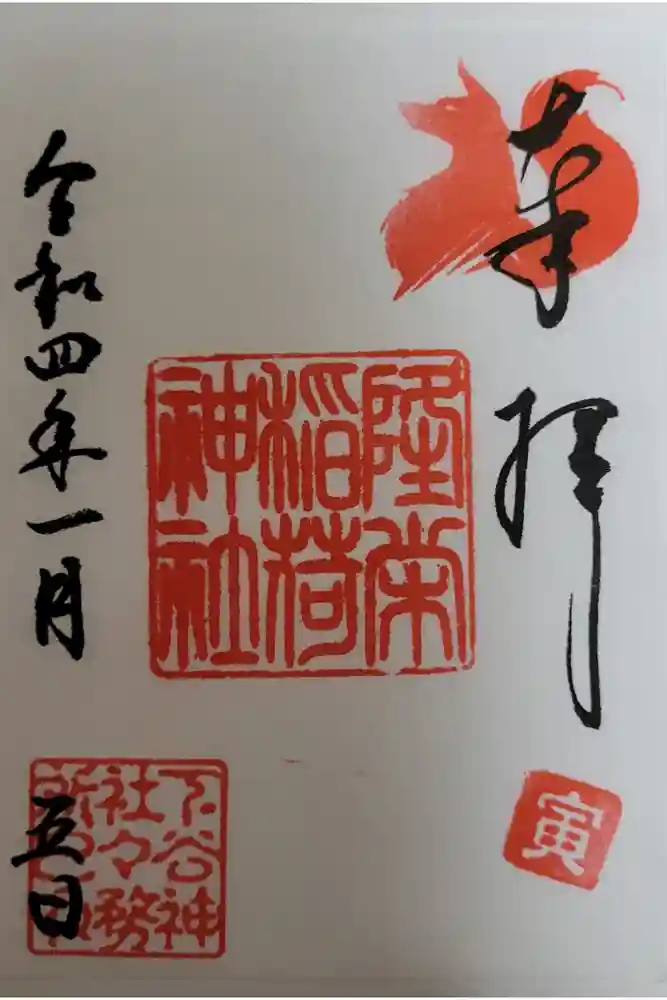 奉拝
寅
隆栄
稲荷
神社
令和四年一月
五日
下谷神
社々務